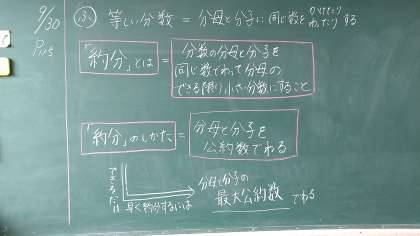 9/30
P105
ふ 等しい分数 = 分母と分子に同じ数を かけたり わったり する
「約分」とは = 分数の分母と分子を
同じ数でわって分母の
できる限り小さい分数にすること
「約分」のしかた = 分母と分子を
公約数でわる
できるだけ
早く約分するには
分母と分子の
最大公約数 でわる